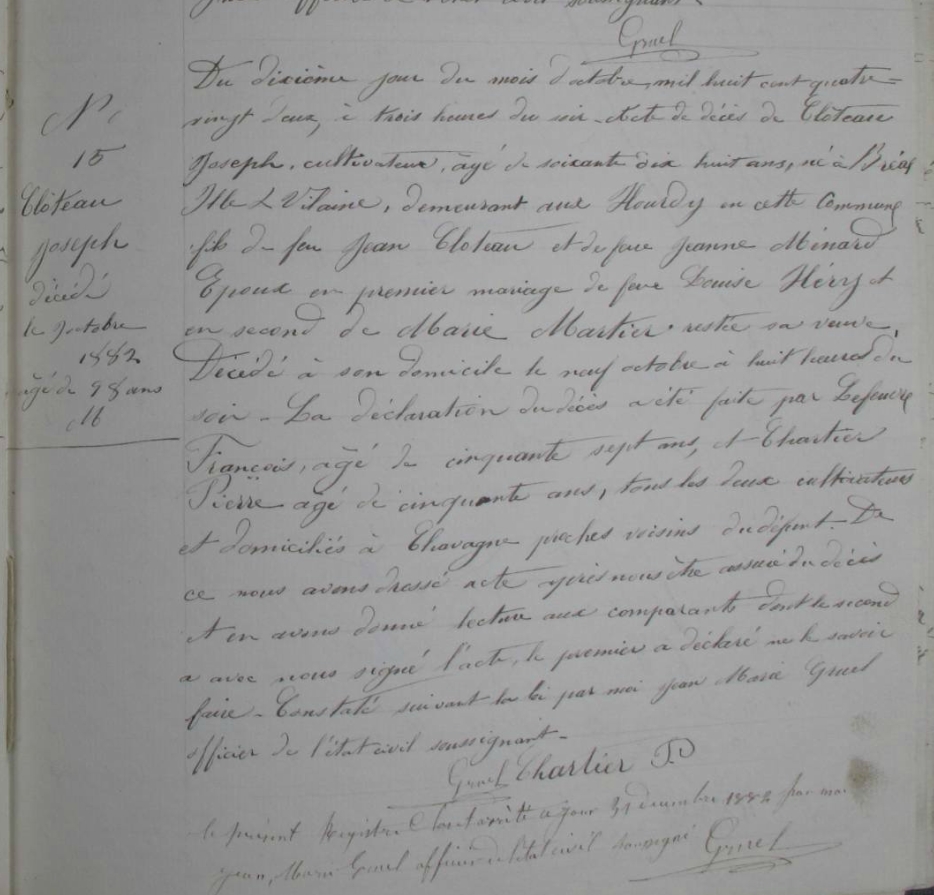 officier de l'état civil soussignant
Gruel
Du dixième jour du mois d'octobre, mil huit cent quatre=
vingt deux, à trois heures du soir - Acte de décès de Cloteau
Joseph, cultivateur, âgé de soixante dix huit ans, né à Bréal
Ille & Vilaine, demeurant aux Hourdy en cette Commune
fils de feu Jean Cloteau et de feue Jeanne Ménard
Epoux en premier mariage de feue Louise Héry et
en second de Marie Martier restée sa veuve,
Décédé à son domicile le neuf octobre à huit heures du
soir - La déclaration du décès a été faite par Lefeuvre
François, âgé de cinquante sept ans, et Chartier
Pierre âgé de cinquante ans, tous les deux cultivateurs
et domiciliés à Chavagne proches voisins du défunt. De
ce nous avons dressé acte après nous être assuré du décès
et en avons donné lecture aux comparants dont le second
a avec nous signé l'acte, le premier a déclaré ne le savoir
faire - Constaté suivant la loi par moi Jean Marie Gruel
officier de l'état civil soussignant -
Gruel Chartier P
le présent Registre Clos et arrêté ce jour 31 decembre 1882 par moi
Jean, Marie Gruel officier de l'état civil soussigné Gruel
N°
15
Cloteau
Joseph
décédé
le 9 octobre
1882
âgé de 78 ans
M